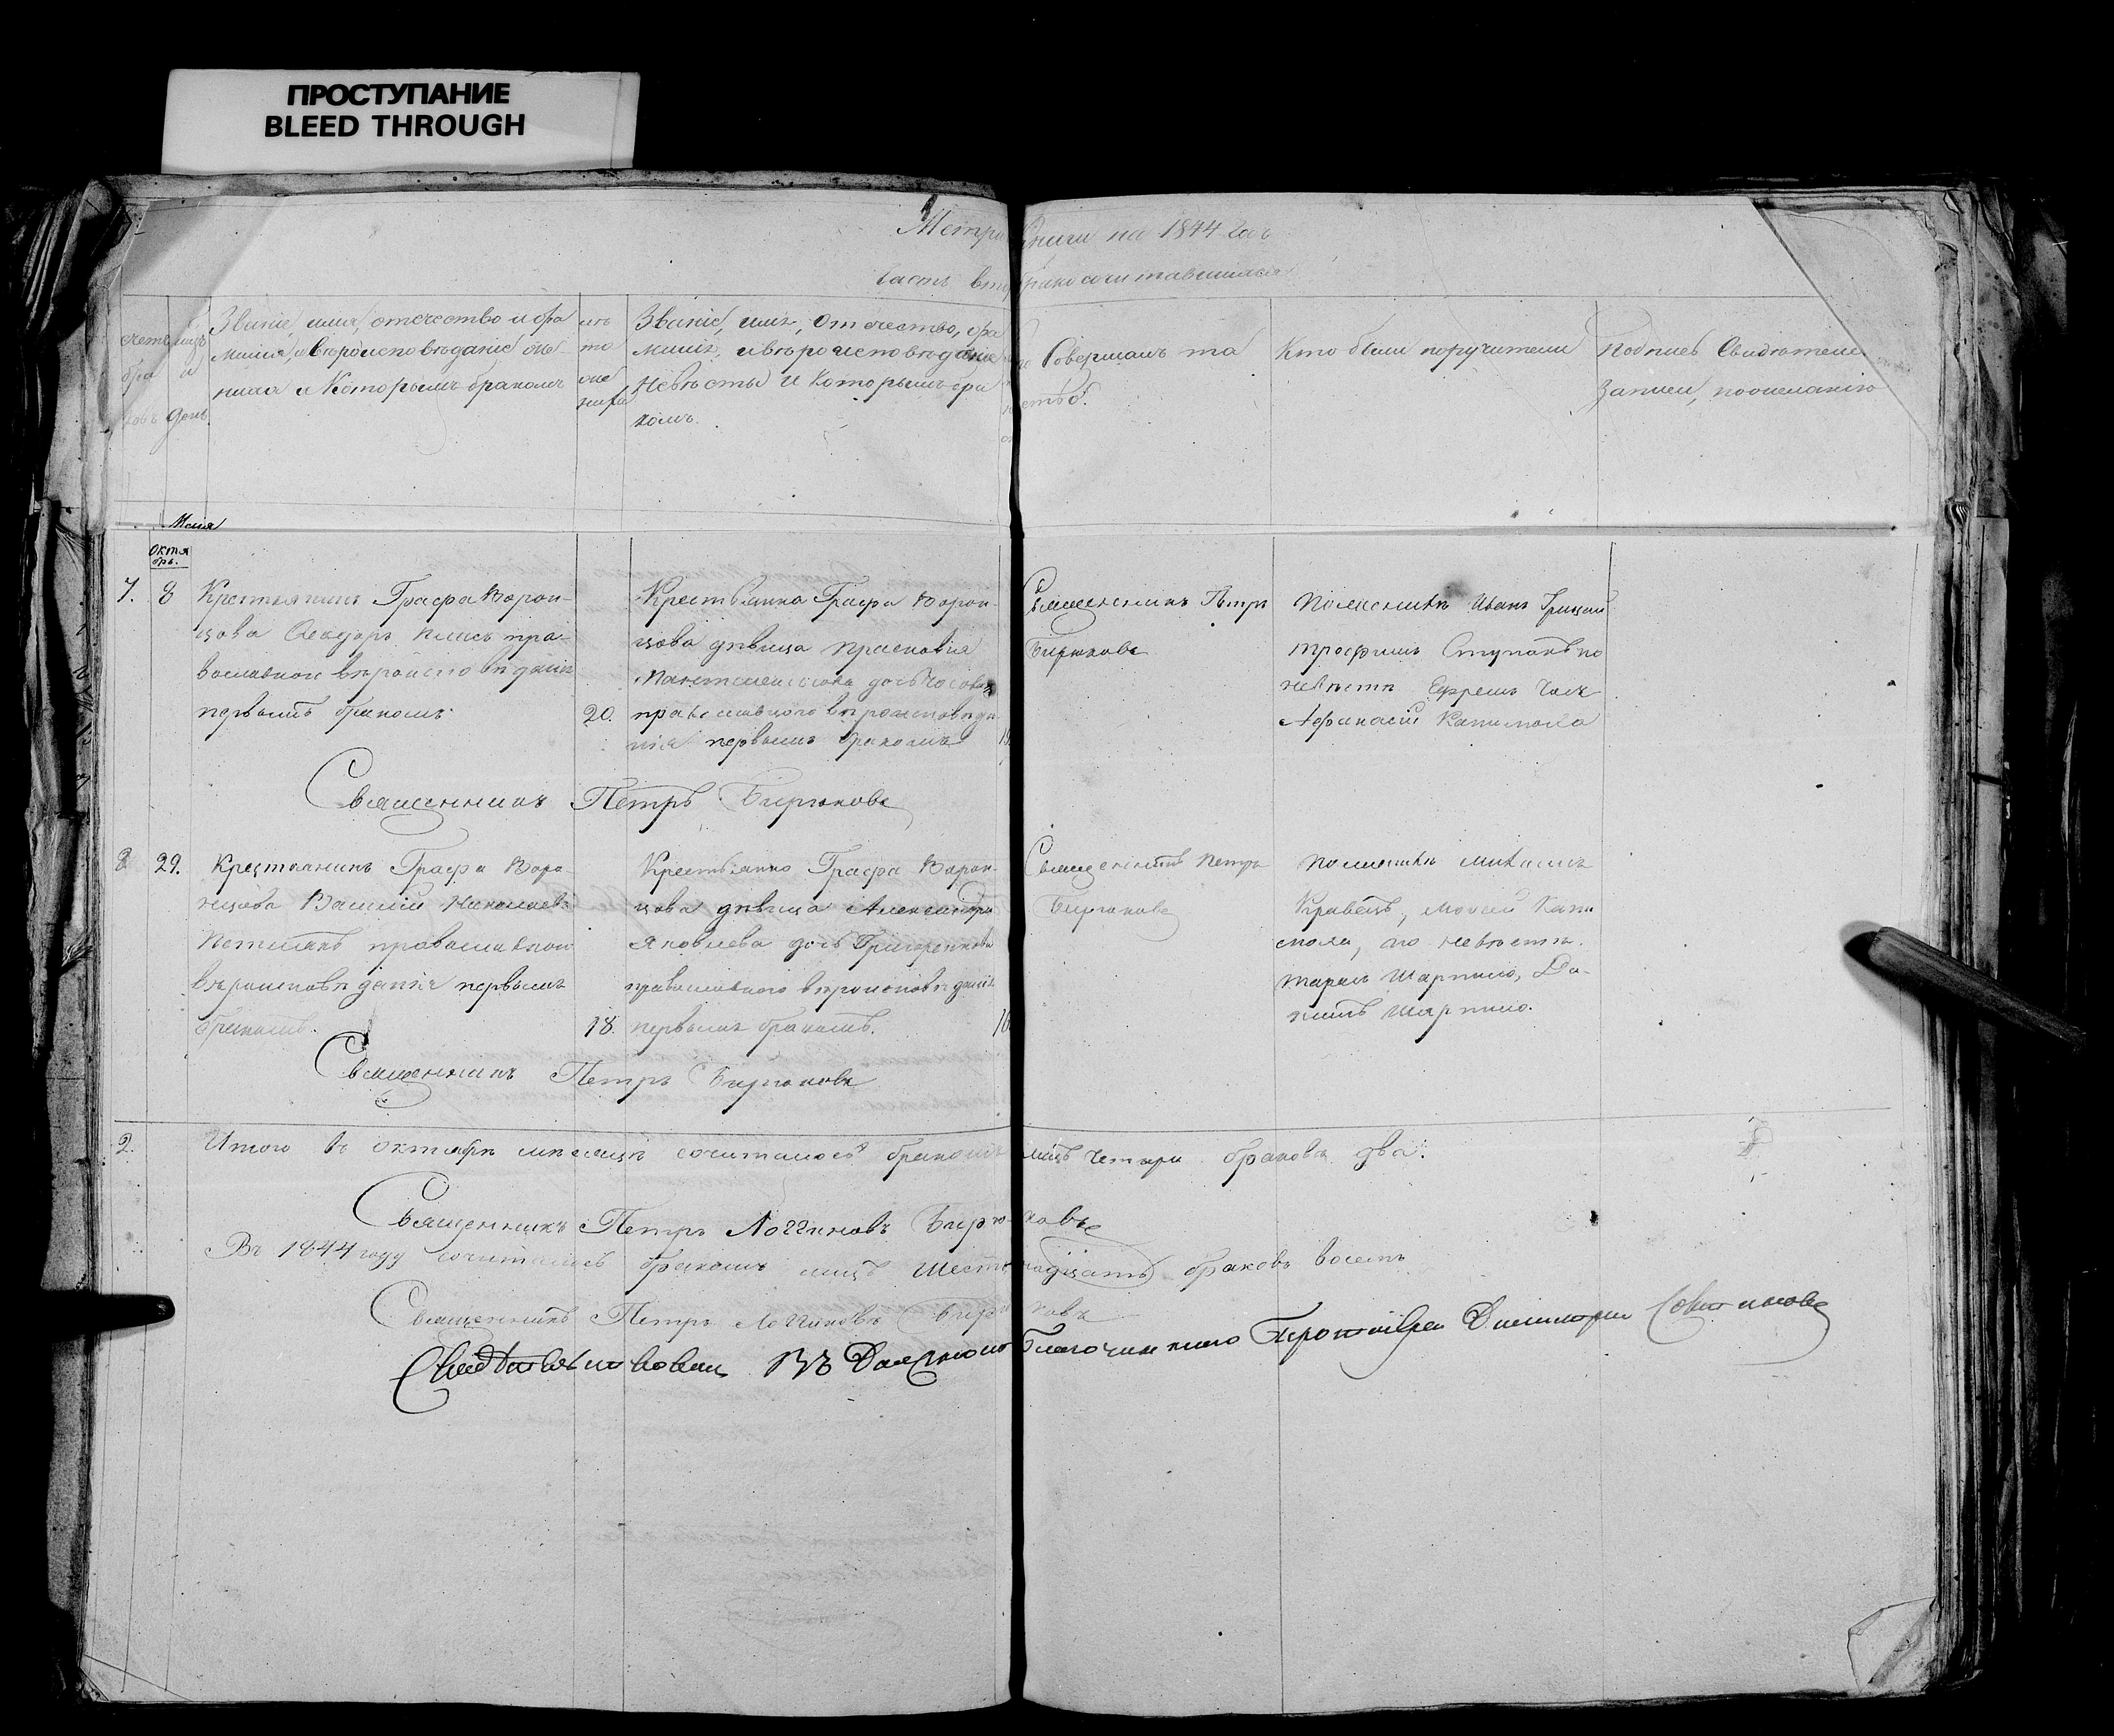 ПРОСТУПАНИЕ
BLEED THROUGH
Метри Книги на 1844 Годъ
Часть вто Бракосочитавшихся
Званіе, имя, отечество и фа
миліи, и вѣроисповѣданіе же-
ниха и Которымъ бракомъ
Званіе, имя, Отечество, фа
миліи, и вѣроисповѣданіе
Невѣсты и Которымъ бра
комъ.
Совершалъ та
Кто были поручители
Подписъ Свидѣтелей
Записи, по желанію
Октя
бръ.
7.
8
Крестьянинъ Графа Ворон-
цова пра-
вославнаго вѣроисповѣданія
первымъ бракомъ
20.
Крестьянка Графа Ворон-
цова дѣвица Прасковья
православнаго вѣроисповѣда-
нія первымъ бракомъ
Священникъ Петръ
Бирюковъ
По женихѣ Иванъ Грицай
Трофимъ Ступакъ по
невѣстѣ Ефремъ
Афанасій
Священникъ Петръ Бирюковъ
8
29.
Крестьянинъ Графа Воро-
нцова Василій Николаевъ
православнаго
вѣроисповѣданія первымъ
бракомъ.
18.
Крестьянка Графа Ворон-
цова дѣвица Александра
Яковлева дочь Григоренкова
православнаго вѣроисповѣданія
первымъ бракомъ.
Священникъ Петръ
Бирюковъ
По женихѣ Михаилъ
Кравецъ, Мокей
по невѣстѣ.
Тарасъ Шарпило, Да-
Шарпило.
Священникъ Петръ Бирюковъ
2.
Итого въ октябрѣ мѣсяцѣ сочиталось бракомъ лицъ четыри браковъ два.
Священникъ Петръ Логгиновъ Бирюковъ
Въ 1844 году сочиталось бракомъ лицъ Шестьнадцать браковъ восемь
Священникъ Петръ Логгиновъ Бирюковъ
Свидѣтельствовалъ Въ Должности Благочиннаго Протоіерей Димитрій